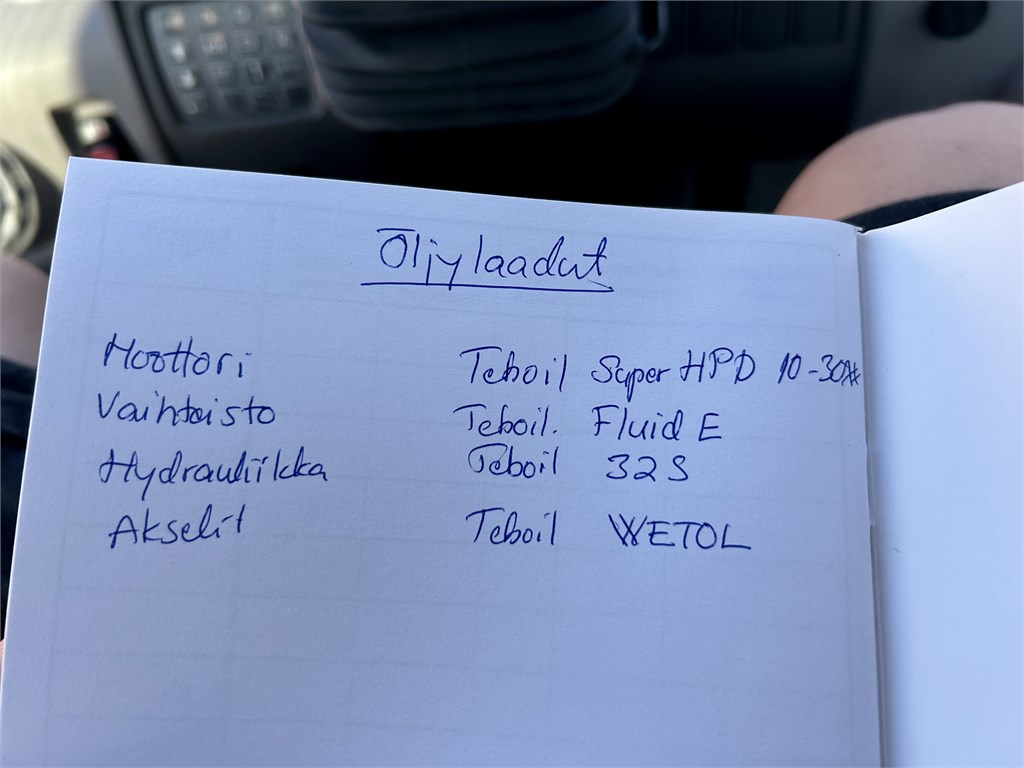 Öljylaadut
Moottori Teboil Super HPD 10-30
Vaihteisto Teboil. Fluid E
Hydrauliikka Teboil 32S
Akselit Teboil WETOL